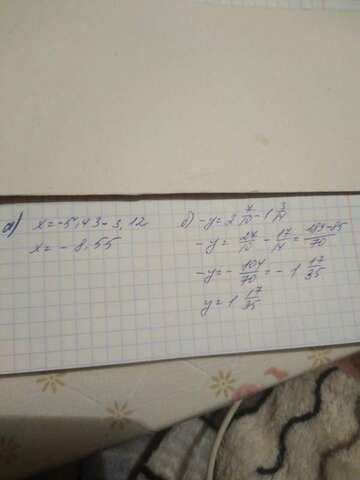 а) x = -5,43 - 3,12
x = - 8,55
б) -y = 2 7/10 - 1 3/14
-y = 27/10 - 17/14 = 189-85/70
-y = - 104/70 = - 1 17/35
y = 1 17/35